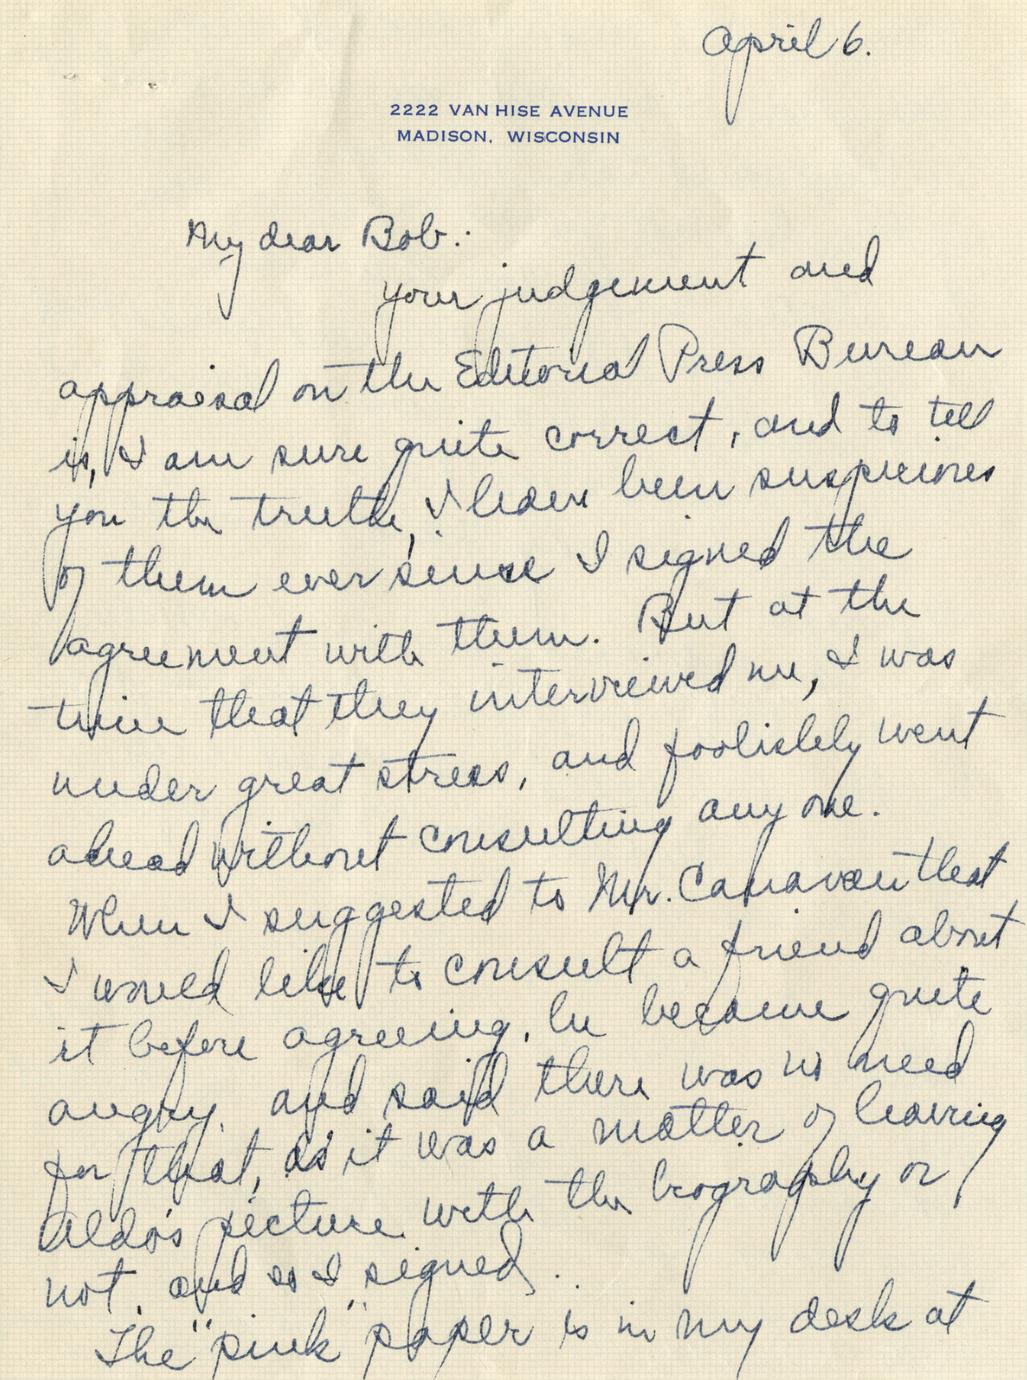 April 6.
2222 VAN HISE AVENUE
MADISON, WISCONSIN
My dear Bob:
your judgement and
appraisal on the Editorial Press Bureau
is, I am sure quite correct, and to tell
you the truth, I have been suspicious
of them ever since I signed the
agreement with them. But at the
time that they interviewed me, I was
under great stress, and foolishly went
ahead without consulting any one.
When I suggested to Mr. Canavan that
I would like to consult a friend about
it before agreeing, he became quite
angry, and said there was no need
for that, as it was a matter of having
Aldo's picture with the biography or
not, and so I signed.
The "pink" paper is in my desk at